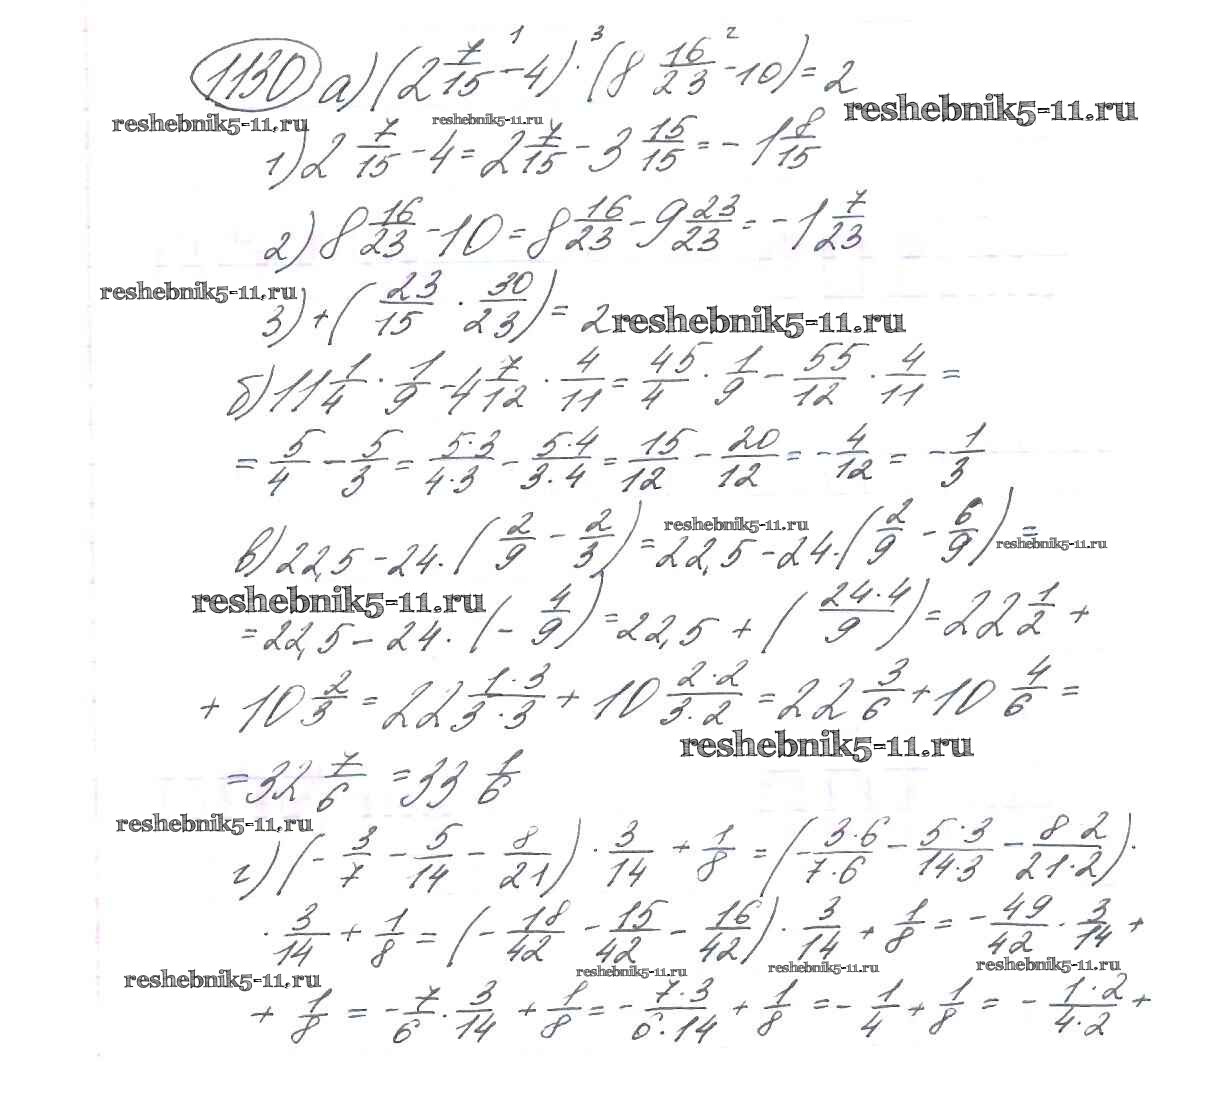 1130 а) (2 7/15 - 4) · (8 16/23 - 10) = 2
1 3 2
reshebnik5-11.ru reshebnik5-11.ru reshebnik5-11.ru
1) 2 7/15 - 4 = 2 7/15 - 3 15/15 = - 1 8/15
2) 8 16/23 - 10 = 8 16/23 - 9 23/23 = - 1 7/23
reshebnik5-11.ru
3) + (23/15 · 30/23) = 2
reshebnik5-11.ru
б) 11 1/4 · 1/9 - 4 7/12 · 4/11 = 45/4 · 1/9 - 55/12 · 4/11 =
= 5/4 - 5/3 = 5·3/4·3 - 5·4/3·4 = 15/12 - 20/12 = - 4/12 = - 1/3
в) 22,5 - 24 · (2/9 - 2/3) = 22,5 - 24 · (2/9 - 6/9) =
reshebnik5-11.ru reshebnik5-11.ru
reshebnik5-11.ru
= 22,5 - 24 · (- 4/9) = 22,5 + (24·4/9) = 22 1/2 +
+ 10 2/3 = 22 1·3/3·3 + 10 2·2/3·2 = 22 3/6 + 10 4/6 =
reshebnik5-11.ru
= 32 7/6 = 33 1/6
reshebnik5-11.ru
г) (- 3/7 - 5/14 - 8/21) · 3/14 + 1/8 = (- 3·6/7·6 - 5·3/14·3 - 8·2/21·2) ·
· 3/14 + 1/8 = (- 18/42 - 15/42 - 16/42) · 3/14 + 1/8 = - 49/42 · 3/14 +
reshebnik5-11.ru reshebnik5-11.ru reshebnik5-11.ru reshebnik5-11.ru
+ 1/8 = - 7/6 · 3/14 + 1/8 = - 7·3/6·14 + 1/8 = - 1/4 + 1/8 = - 1·2/4·2 +